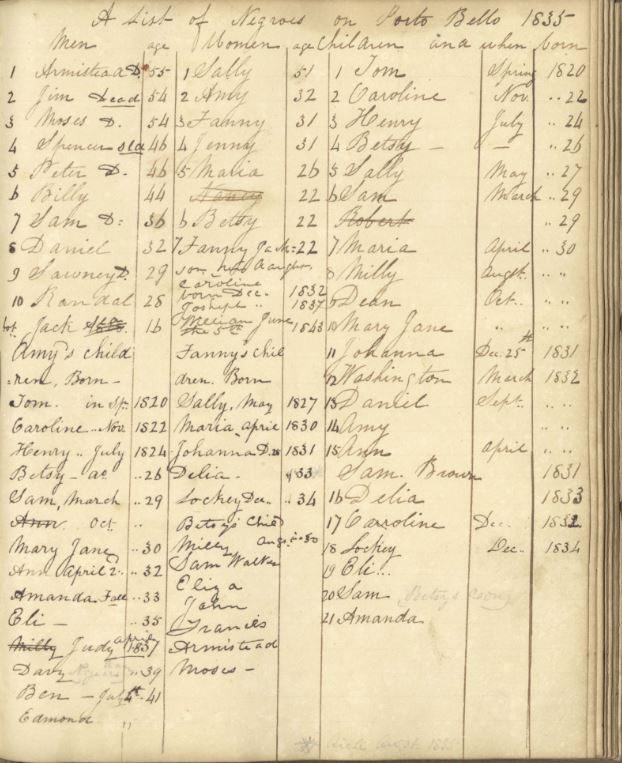 A List of Negroes on Porto Bello 1835
Men age Women age Children and when born
1 Armistead D. 55 1 Sally 51 1 Tom Spring 1820
2 Jim Dead 54 2 Amy 32 2 Caroline Nov. .. 22
3 Moses D. 54 3 Fanny 31 3 Henry July .. 24
4 Spencer 46 4 Jenny 31 4 Betsy - - .. 26
5 Peter D. 46 5 Maria 26 5 Sally May .. 27
6 Billy 44 Nancy 22 6 Sam March .. 29
7 Sam D: 36 6 Betsy 22 Robert .. 29
8 Daniel 32 7 Fanny Jack: 22 7 Maria April .. 30
9 Sawney D. 29 Caroline 8 Milly Augst. .. ..
10 Randal 28 born Dec. 1832 9 Dean Oct. .. ..
Joseph .. 1837
Jack 16 William June 1843 10 Mary Jane " .. ..
Amy's child Fanny's chil 11 Johanna Dec. 25th 1831
:ren, Born - dren. Born 12 Washington March 1832
Tom. in Sp: 1820 Sally, May 1827 13 Daniel Sept. .. ..
Caroline .. Nov 1822 Maria, April 1830 14 Amy .. ..
Henry .. July 1824 Johanna D. 1831 15 Ann April .. ..
Betsy - .. 26 Delia - 33 Sam. Brown 1831
Sam, March .. 29 Lockey, Dec .. 34 16 Delia 1833
Ann. Oct. .. Betsy's Child 17 Carroline Dec.
Mary Jane .. 30 Milly Aug. .. 30 18 Lockey Dec. 1834
Ann April 2 .. 32 Sam Walker 19 Eli ..
Amanda Fall .. 33 Eliza 20 Sam Betsy's
Eli - .. 35 John 21 Amanda
Francis
Milly Judy April 1837 Armistead
Davy .. 39 Moses -
Ben - July 4th . 41
Edmond "